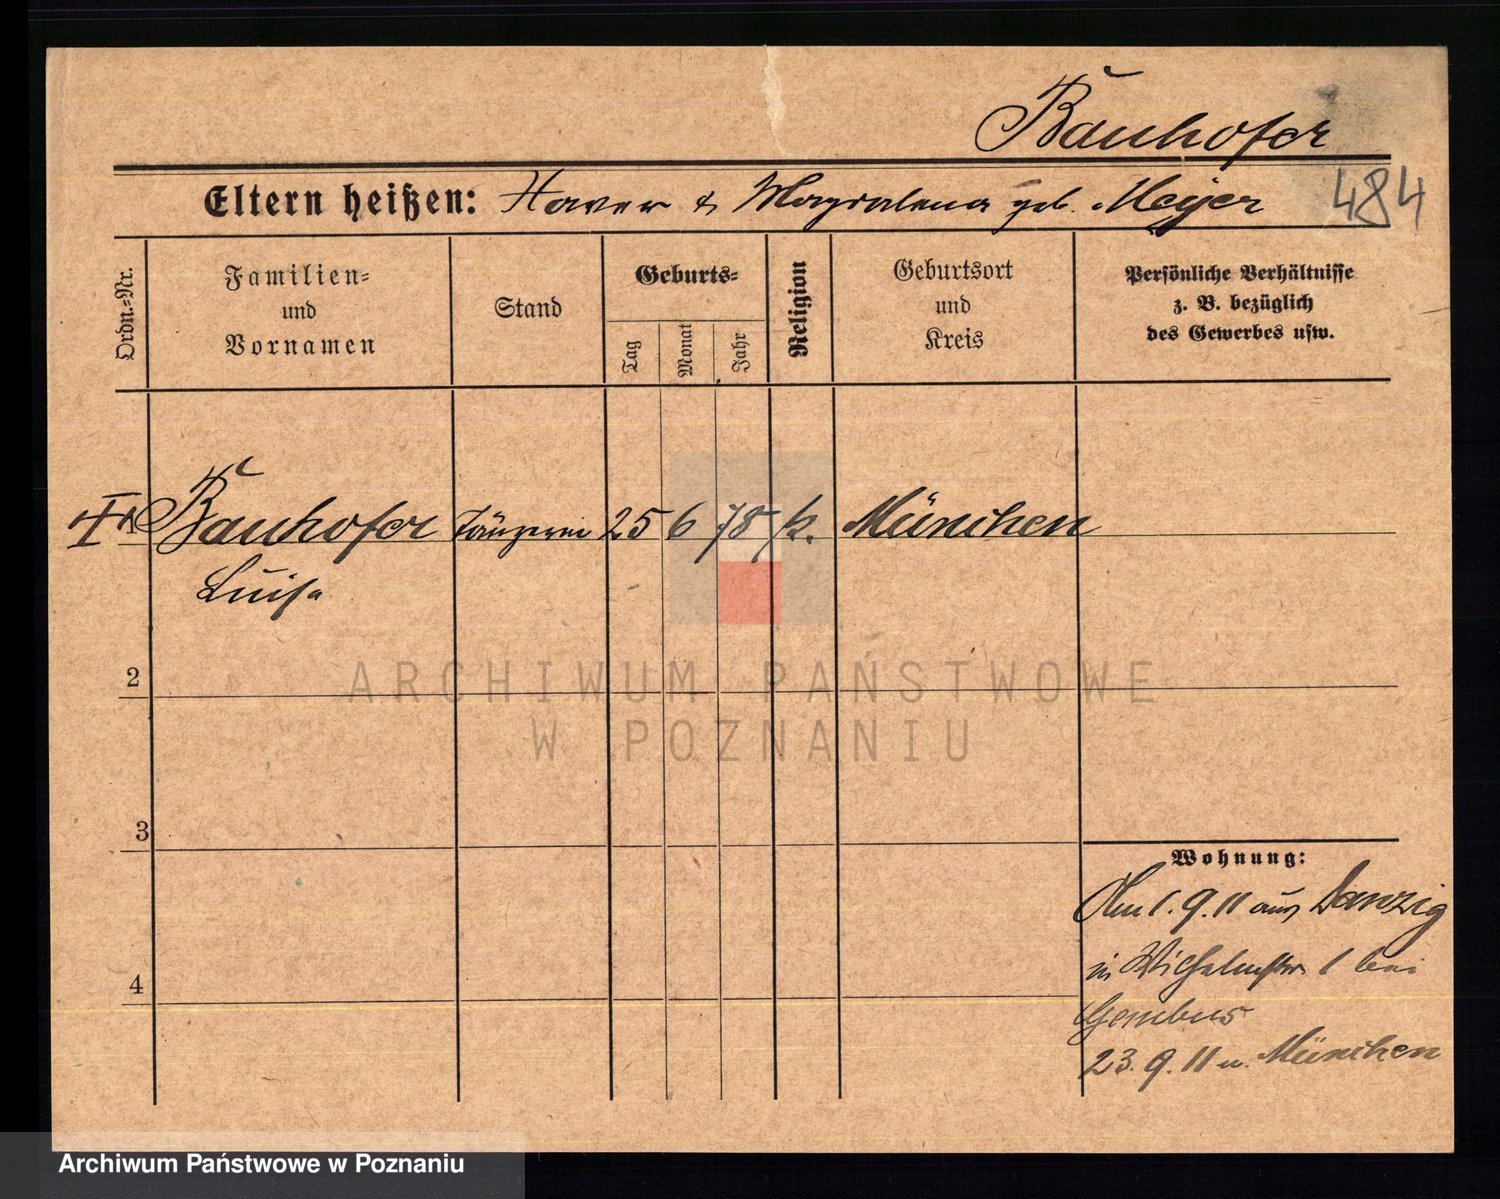 Bauhofer
Eltern heißen: Xaver & Magdalena geb. Meyer
484
Ordn.=Nr.
Familien=
und
Vornamen
Stand
Geburts=
Tag
Monat
Jahr
Religion
Geburtsort
und
Kreis
Persönliche Verhältnisse
z. B. bezüglich
des Gewerbes usw.
1 Bauhofer Tänzerin 25 6 78 k. München
Luise
2
ARCHIWUM PAŃSTWOWE
W POZNANIU
3
Wohnung:
Am 1. 9. 11 aus Danzig
in Wilhelmstr. 1 bei
4
Gembus
23. 9. 11 n. München
Archiwum Państwowe w Poznaniu